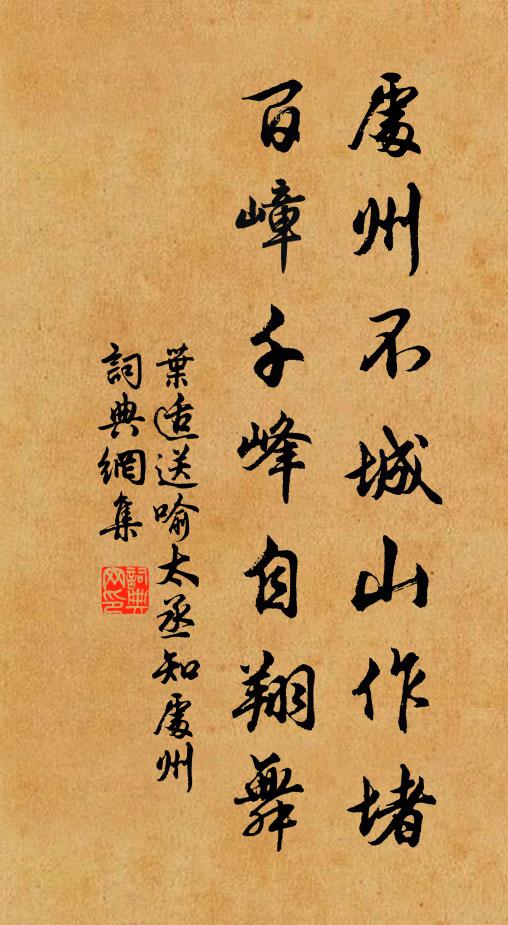 處州不城山作堵
百嶂千峰自翔舞
葉適送喻太丞知處州
詞典網集
詞典网印